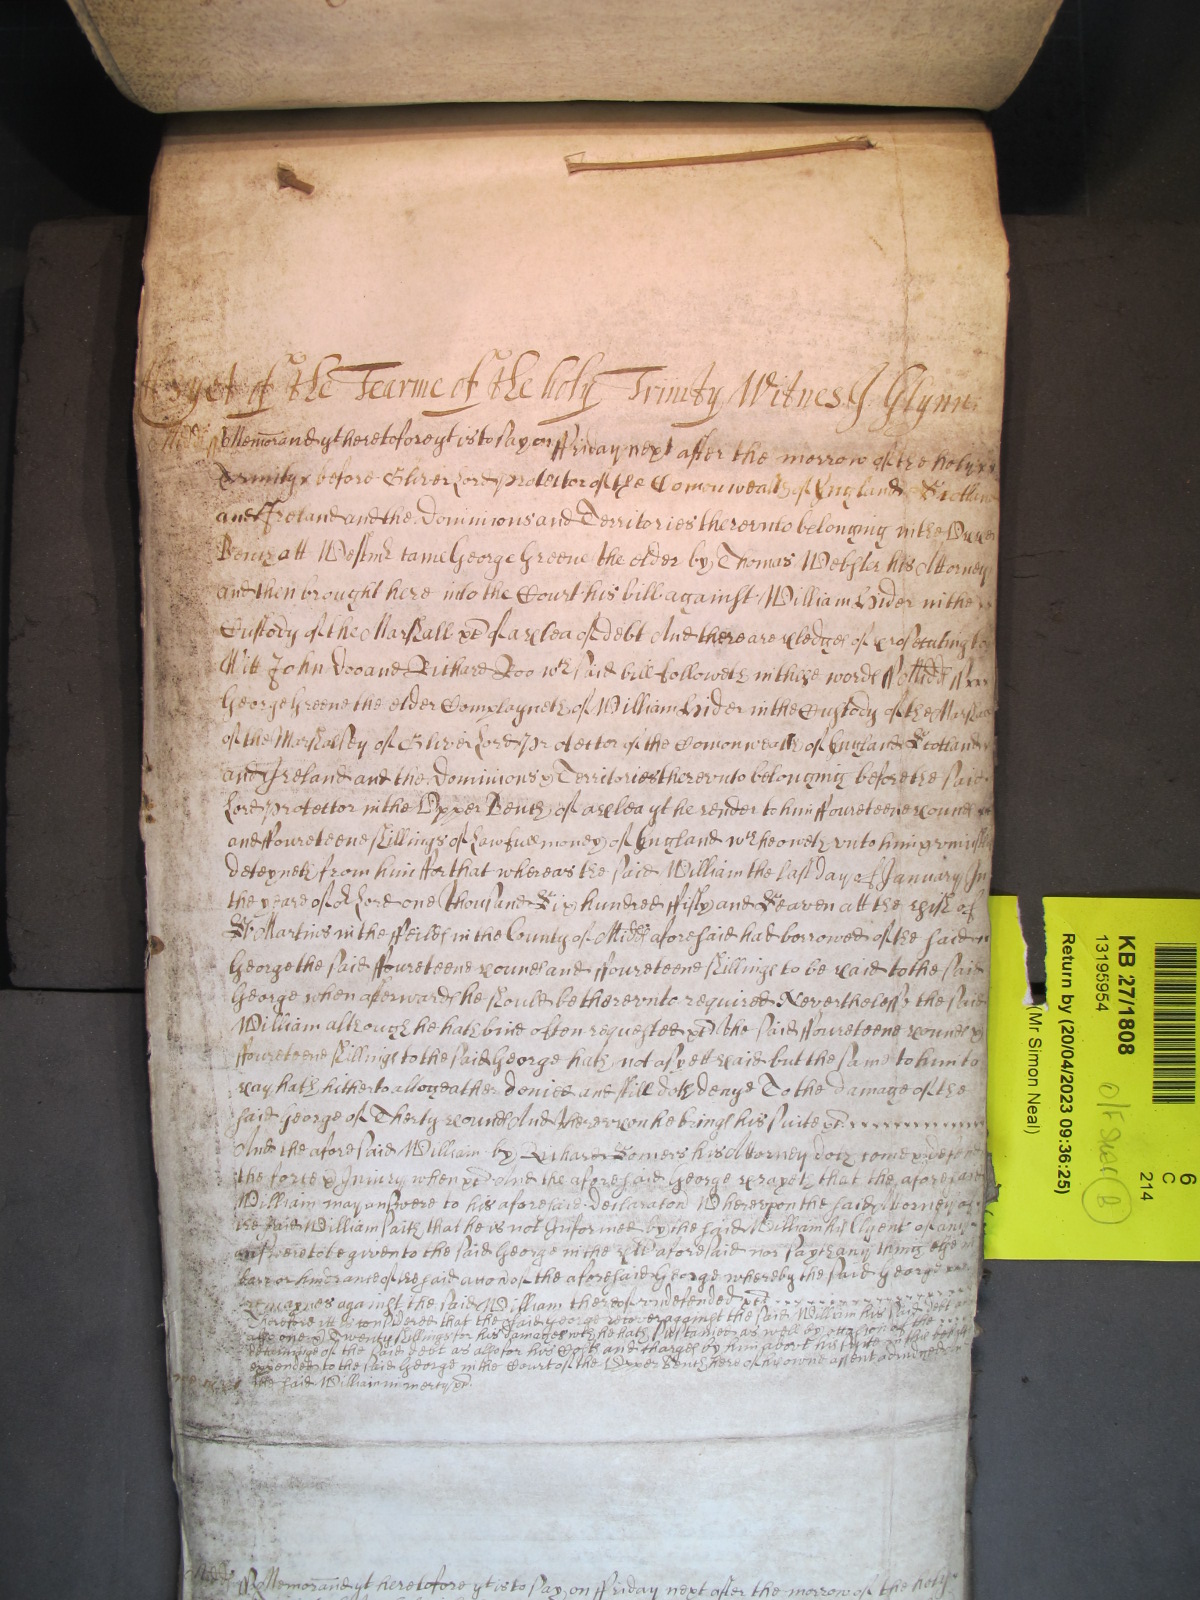 yet of the Tearme of the holy Trinity Witnes J Glynn:
Midd ss Memorand yt heretofore yt is to say on ffriday next after the morrow of the holy
Trinity before Oliver Lord Protector of the Comonwealth of England Scotland
and Ireland and the Dominions and Territories thereunto belonging in the Upper
Bench att Westmr came George Greene the elder by Thomas his Attorney
and then brought here into the Court his bill against William Hider in the
Custody of the Marshall &c of a plea of debt And there are pledges of prosecuting to
Witt John Doo and Richard Roo wch said bill followeth in these words ss Midd ss
George Greene the elder Complayneth of William Hider in the Custody of the Marshall
of the Marshalsey of Oliver Lord Protector of the Comonwealth of England Scotland
and Ireland and the Dominions & Territories thereunto belonging before the said
Lord Protector in the Upper Bench of a plea yt he render to him ffoureteene pounds
and ffoureteene shillings of Lawfull money of England wch he oweth unto him &
deteyneth from him ffor that whereas the said William the last day of January In
the yeare of or Lord one Thousand Six hundred ffifty and Seaven att the pish of
St Martins in the ffeilds in the County of Midd aforesaid had borrowed of the said
George the said ffoureteene pounds and ffoureteene shillings to be paid to the said
George when afterwards he should be thereunto required Neverthelesse the said
William although he hath bine often requested &c the said ffoureteene pounds &
ffoureteene shillings to the said George hath not as yett paid but the same to him to
pay hath hitherto altogeather denied and still doth denye To the damage of the
said George of Therty pounds And thereupon he brings his suite &c
And the aforesaid William by Richard Somers his Attorney doth come & defend
the force & Injury when &c And the aforesaid George prayeth that the aforesaid
William may answere to his aforesaid declaration Whereupon the said Attorney of
the said William saith that he is not Informed by the said William his Clyent of any
answere to be given to the said George in the aforesaid nor sayth any thing else in
barr or hinderance of the said accon of the aforesaid George whereby the said George
remaynes against the said William thereof undefended &c
Therefore it is considered that the said George recover against the said William his said debt and
alsoe one & Twenty shillings for his damages wch he hath sustained as well by occasion of the
detaininge of the said debt as also for his Costs and charges by him about his suite in this behalfe
expended to the said George in the Court of the Upper Bench here of his owne assent adiudged
the said William in mercy &c
ss Memorand yt heretofore yt is to say on ffriday next after the morrow of the holy
KB 27/1808
13195954
Return by (20/04/2023 09:36:25)
(Mr Simon Neal)
6
C
214
B